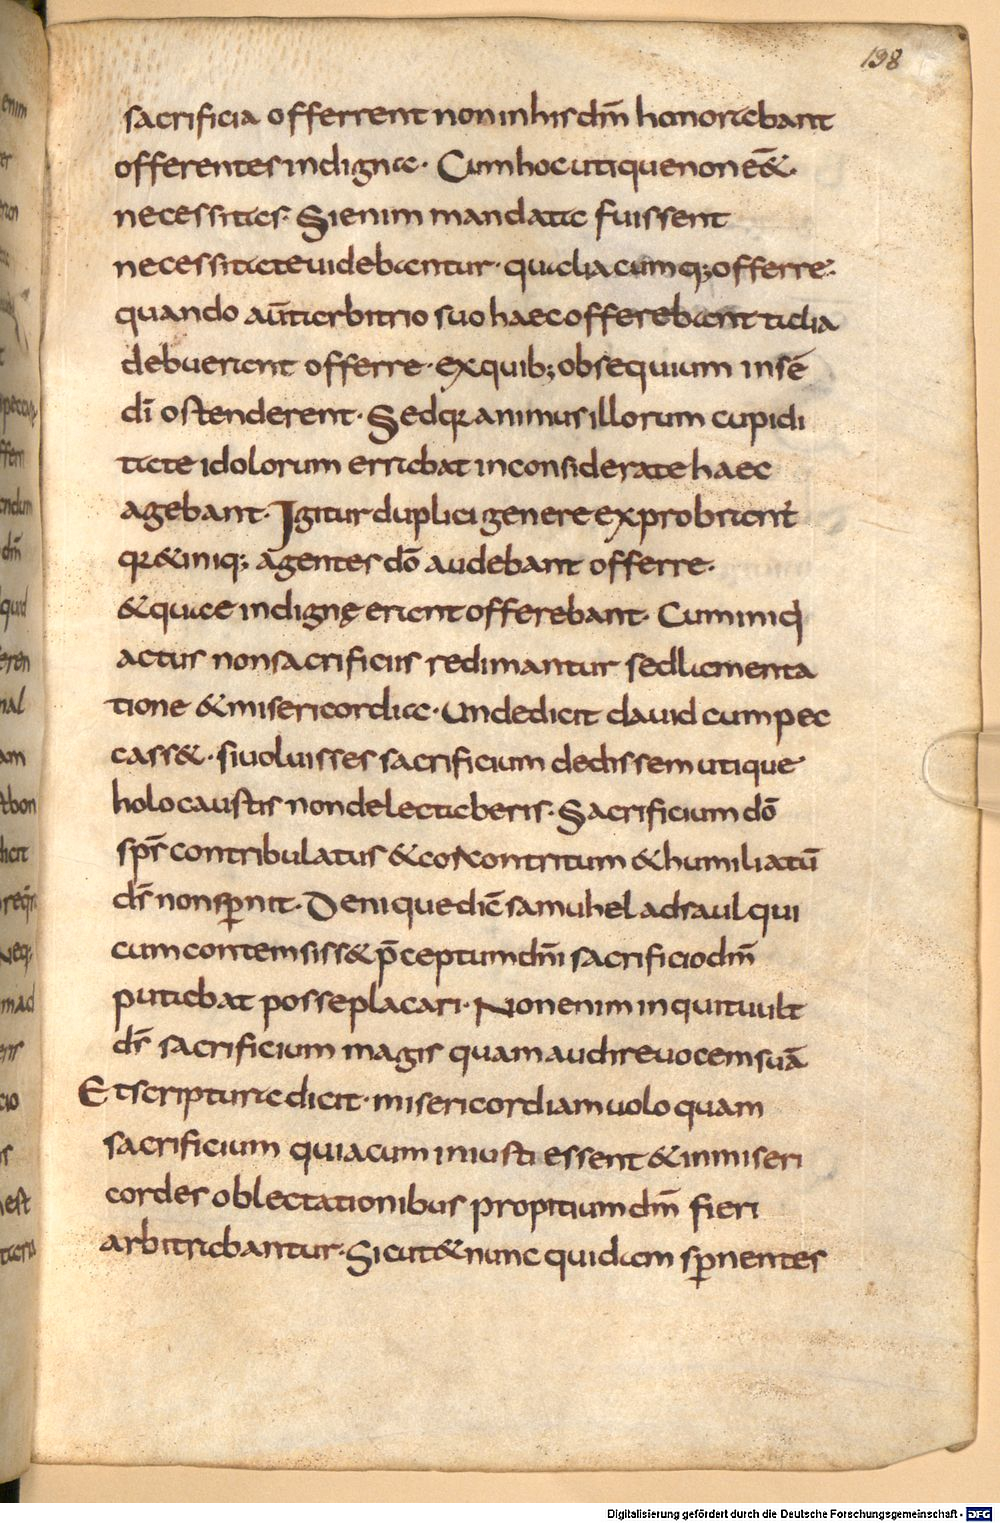 198
sacrificia offerrent non in his dm̄ honorabant
offerentes indigna· Cum hoc utique non eēt·
necessitas· Si enim mandata fuissent
necessitate uidebantur· qualiacumq; offerre·
quando aūt arbitrio suo haec offerebant talia
debuerant offerre· ex quib; obsequium in sē
dī ostenderent· Sed qa animus illorum cupidi
tate idolorum errabat inconsiderate haec
agebant· Igitur duplici genere exprobrant
qa & iniq; agentes dō audebant offerre·
& quae indignę erant offerebant· Cum iniq
actus non sacrificiis redimantur sed lamenta
tione & misericordia· Unde dicit dauid cum pec
cass&· si uoluisses sacrificium dedissem utique
holocaustis non delectaberis· Sacrificium dō
sps̄ contribulatus & cor contritum & humiliatū
ds̄ non spernit· Denique dic̄ samuhel ad saul qui
cum contemsiss& p̄ceptum dn̄i sacrificio dm̄
putabat posse placari· Non enim inquit uult
ds̄ sacrificium magis quam audire uocem suā
Et scriptura dicit· misericordiam uolo quam
sacrificium quia cum iniusti essent & inmiseri
cordes oblectationibus propitium dm̄ fieri
arbitrabantur· Sicut & nunc quidam spernentes
Digitalisierung gefördert durch die Deutsche Forschungsgemeinschaft - DFG